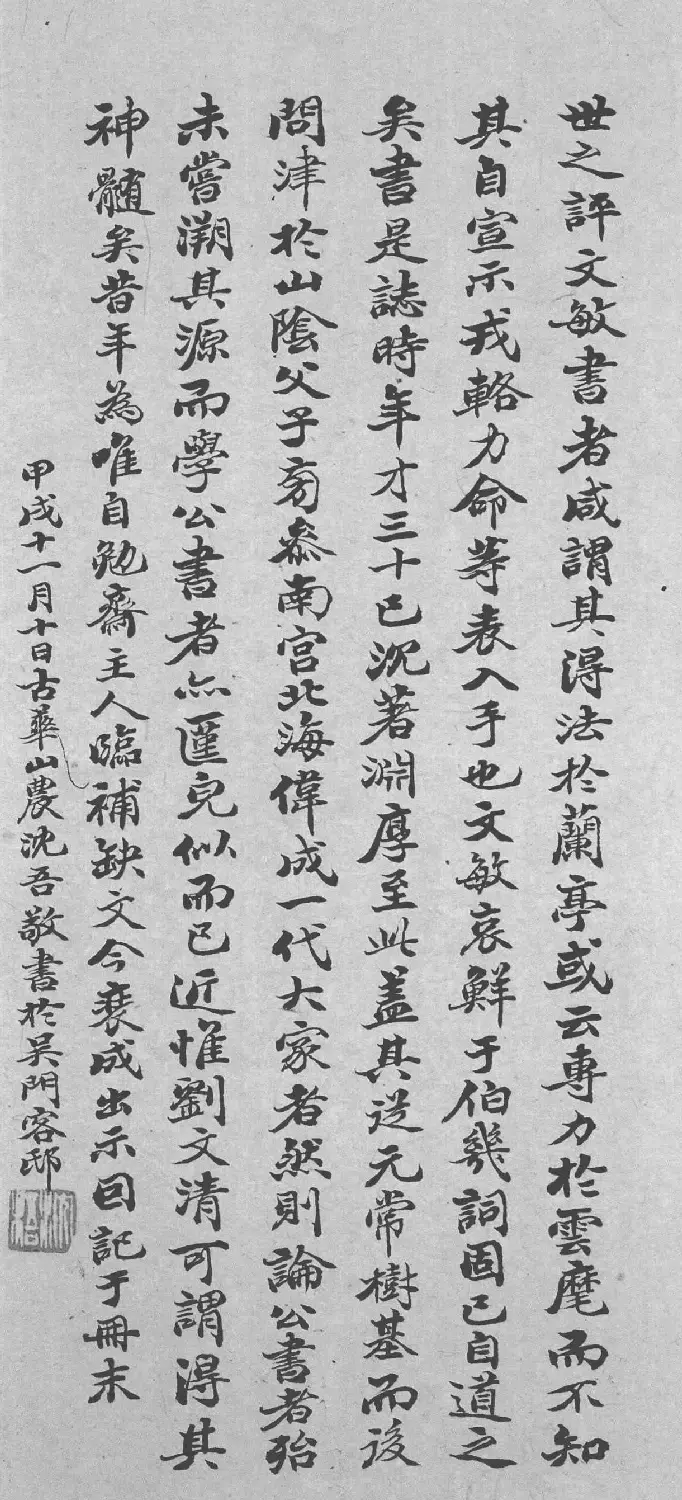 世之評文敏書者咸謂其得法於蘭亭或云專力於雲麾而不知
其自宣示戎輅力命等表入手也文敏哀鮮于伯幾詞固已自道之
矣書是誌時年才三十已沉著淵厚至此蓋其從元常樹基而後
問津於山陰父子旁叅南宮北海偉成一代大家者然則論公書者殆
未嘗溯其源而學公書者亦匡皃似而已近惟劉文清可謂得其
神髓矣昔年為唯自勉齋主人臨補缺文今裝成出示因記于冊末
甲戌十一月十日古華山農沈吾敬書於吳門客邸